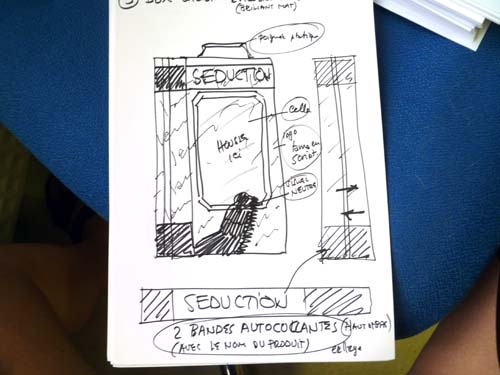 (BRILLIANT MAT)
poignée plastique
SEDUCTION
celle
HOUSSE
ici
logo
script
VISUEL
NEUTRE
SEDUCTION
2 BANDES AUTOCOLLANTES (HAUT ET BAS)
(AVEC LE NOM DU PRODUIT)